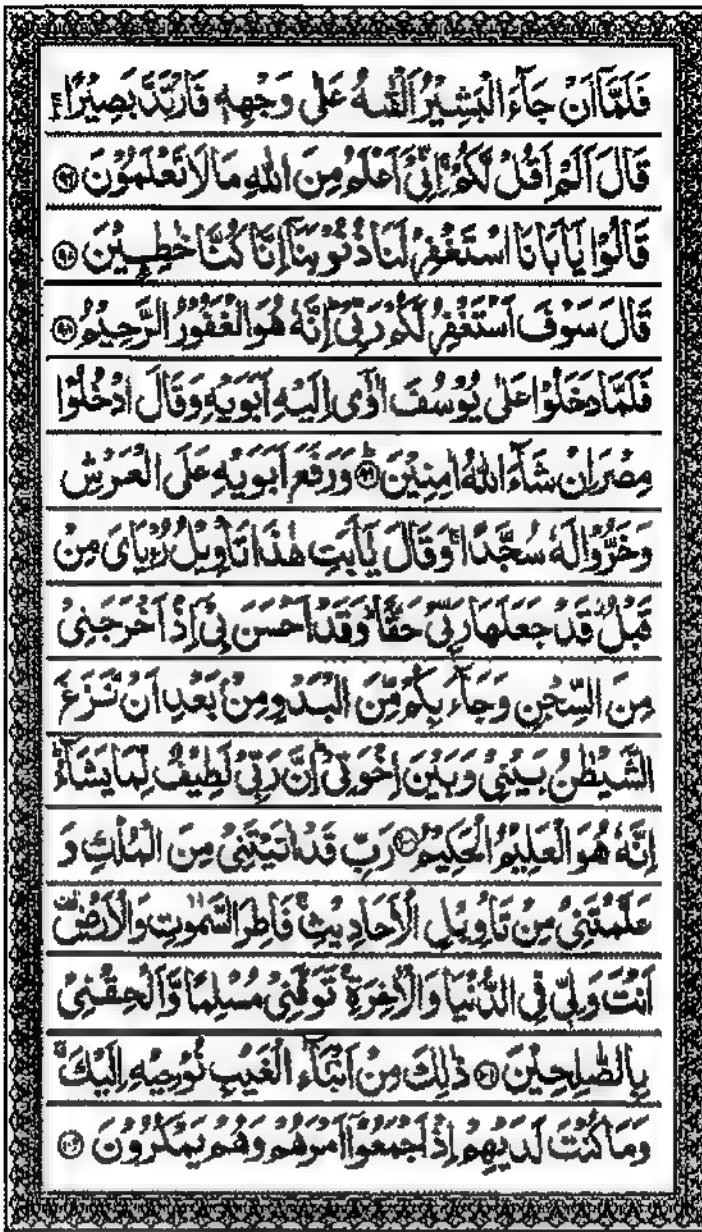 فَلَمَّاۤ اَنْ جَآءَ الْبَشِیْرُ اَلْقٰىهُ عَلٰی وَجْهِهٖ فَارْتَدَّ بَصِیْرًا ۚ
قَالَ اَلَمْ اَقُلْ لَّكُمْ ۚ اِنِّیْۤ اَعْلَمُ مِنَ اللّٰهِ مَا لَا تَعْلَمُوْنَ ﴿۹۶﴾
قَالُوْا یٰۤاَبَانَا اسْتَغْفِرْ لَنَا ذُنُوْبَنَاۤ اِنَّا كُنَّا خٰطِـِٕیْنَ ﴿۹۷﴾
قَالَ سَوْفَ اَسْتَغْفِرُ لَكُمْ رَبِّیْ ؕ اِنَّهٗ هُوَ الْغَفُوْرُ الرَّحِیْمُ ﴿۹۸﴾
فَلَمَّا دَخَلُوْا عَلٰی یُوْسُفَ اٰوٰۤی اِلَیْهِ اَبَوَیْهِ وَقَالَ ادْخُلُوْا
مِصْرَ اِنْ شَآءَ اللّٰهُ اٰمِنِیْنَ ﴿۹۹﴾ؕ وَرَفَعَ اَبَوَیْهِ عَلَی الْعَرْشِ
وَخَرُّوْا لَهٗ سُجَّدًا ۚ وَقَالَ یٰۤاَبَتِ هٰذَا تَاْوِیْلُ رُءْیَایَ مِنْ
قَبْلُ ؗ قَدْ جَعَلَهَا رَبِّیْ حَقًّا ؕ وَقَدْ اَحْسَنَ بِیْۤ اِذْ اَخْرَجَنِیْ
مِنَ السِّجْنِ وَجَآءَ بِكُمْ مِّنَ الْبَدْوِ مِنْۢ بَعْدِ اَنْ نَّزَغَ
الشَّیْطٰنُ بَیْنِیْ وَبَیْنَ اِخْوَتِیْ ؕ اِنَّ رَبِّیْ لَطِیْفٌ لِّمَا یَشَآءُ ؕ
اِنَّهٗ هُوَ الْعَلِیْمُ الْحَكِیْمُ ﴿۱۰۰﴾ رَبِّ قَدْ اٰتَیْتَنِیْ مِنَ الْمُلْكِ وَ
عَلَّمْتَنِیْ مِنْ تَاْوِیْلِ الْاَحَادِیْثِ ۚ فَاطِرَ السَّمٰوٰتِ وَالْاَرْضِ ۫
اَنْتَ وَلِیّٖ فِی الدُّنْیَا وَالْاٰخِرَةِ ۚ تَوَفَّنِیْ مُسْلِمًا وَّاَلْحِقْنِیْ
بِالصّٰلِحِیْنَ ﴿۱۰۱﴾ ذٰلِكَ مِنْ اَنْۢبَآءِ الْغَیْبِ نُوْحِیْهِ اِلَیْكَ ۚ
وَمَا كُنْتَ لَدَیْهِمْ اِذْ اَجْمَعُوْۤا اَمْرَهُمْ وَهُمْ یَمْكُرُوْنَ ﴿۱۰۲﴾